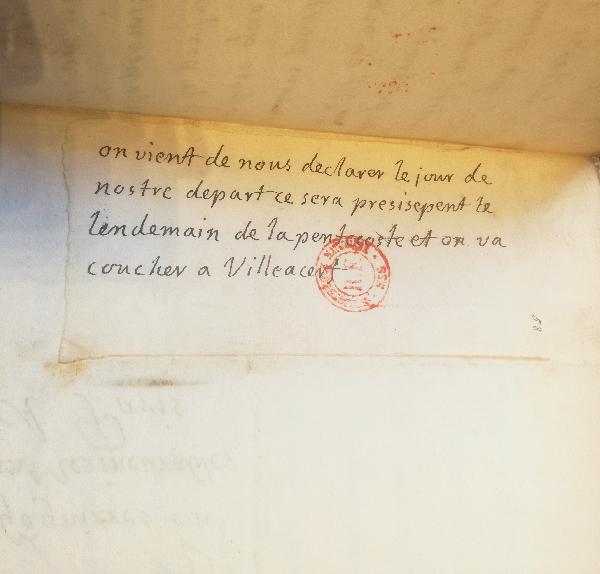 on vient de nous declarer le jour de
nostre depart ce sera presisepent le
lendemain de la pentecoste et on va
coucher a Villeacert
58